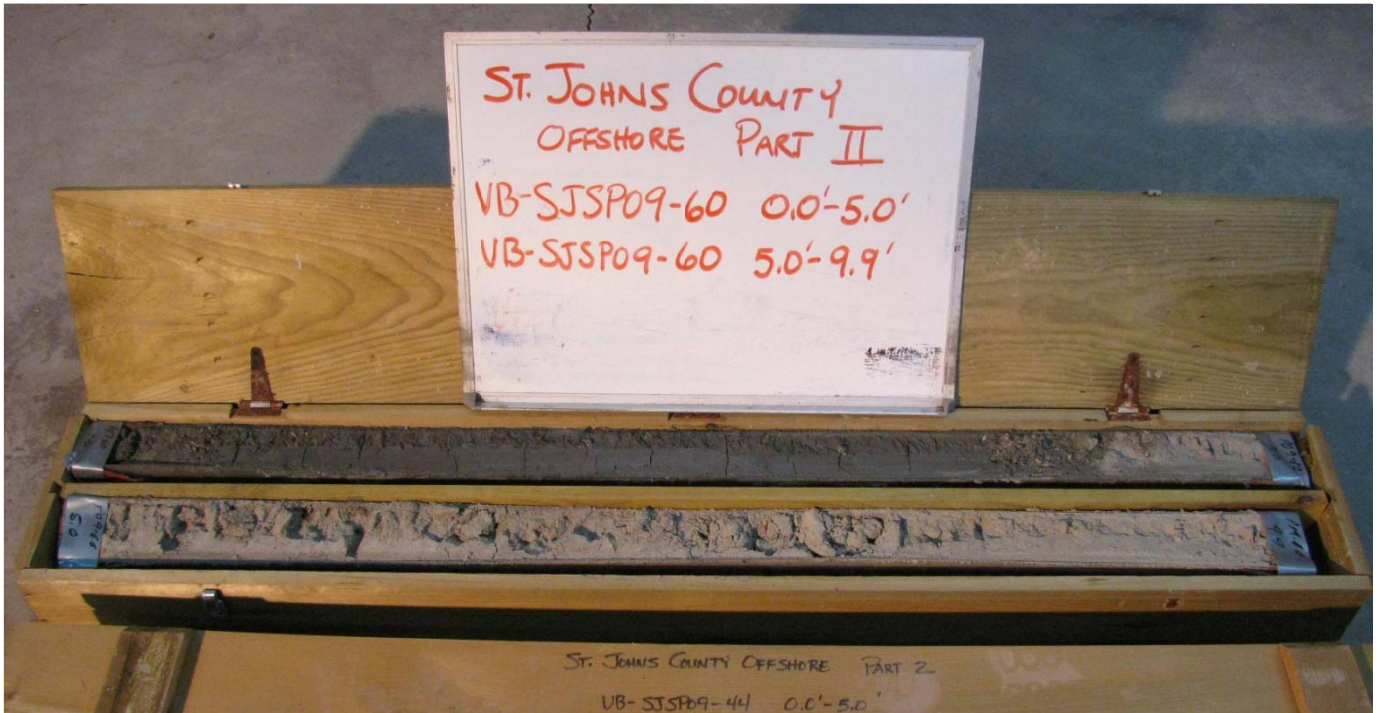 ST. JOHNS COUNTY
OFFSHORE PART II
VB-SJSP09-60 0.0'-5.0'
VB-SJSP09-60 5.0'-9.9'
5.0
ST. JOHNS COUNTY OFFSHORE PART 2
VB-SJSP09-44 0.0'-5.0'